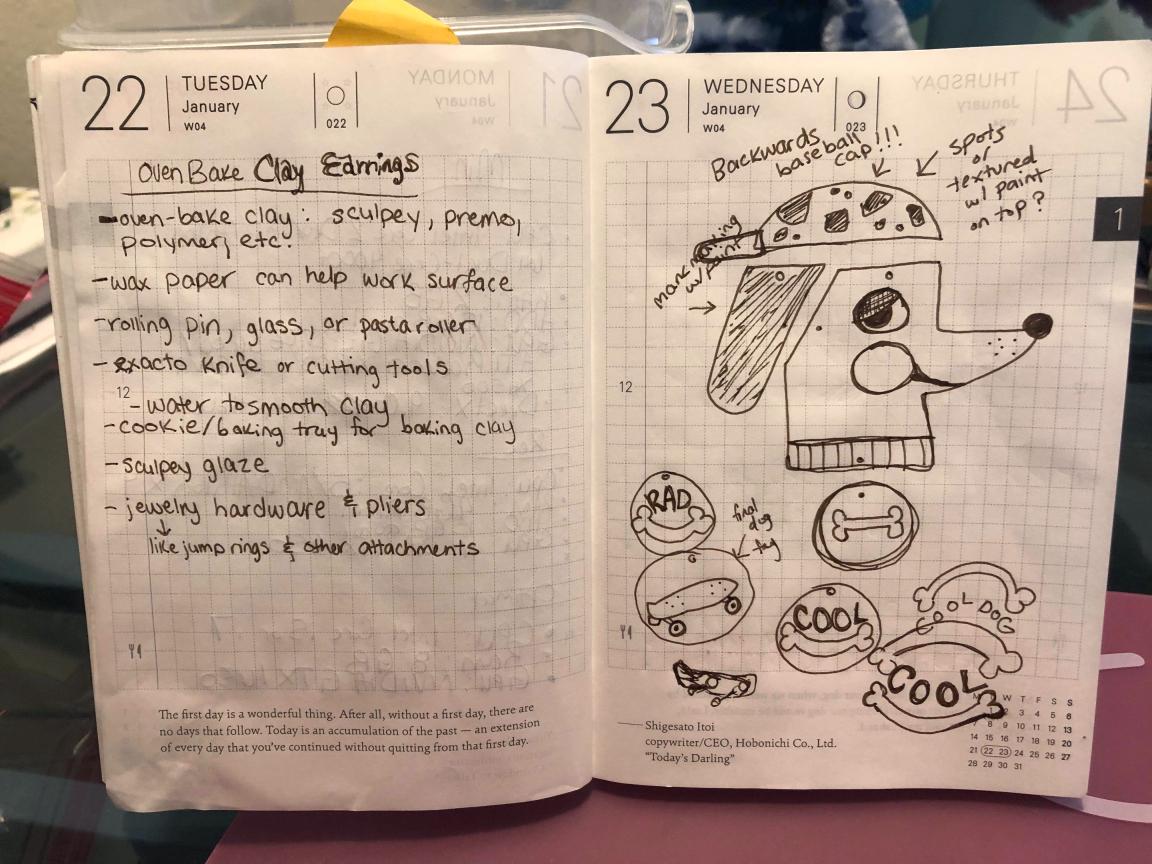 22
TUESDAY
January
W04
022
Oven Bake Clay Earrings
-oven-bake clay: sculpey, premo,
polymer, etc.
-wax paper can help work surface
-rolling pin, glass, or pasta roller
-exacto knife or cutting tools
12
-water to smooth clay
-cookie/baking tray for baking clay
-sculpey glaze
-jewelry hardware & pliers
like jump rings & other attachments
The first day is a wonderful thing. After all, without a first day, there are
no days that follow. Today is an accumulation of the past — an extension
of every day that you've continued without quitting from that first day.
23
WEDNESDAY
January
W04
023
Backwards
baseball
cap!!!
spots
or
textured
w/ paint
on top?
mark making
w/ paint
1
12
RAD
final
dog
tag
COOL
COOL DOG
COOL
Shigesato Itoi
copywriter/CEO, Hobonichi Co., Ltd.
"Today's Darling"
W T F S S
2 3 4 5 6
8 9 10 11 12 13
14 15 16 17 18 19 20
21 22 23 24 25 26 27
28 29 30 31
MONDAY
January
21
THURSDAY
January
24